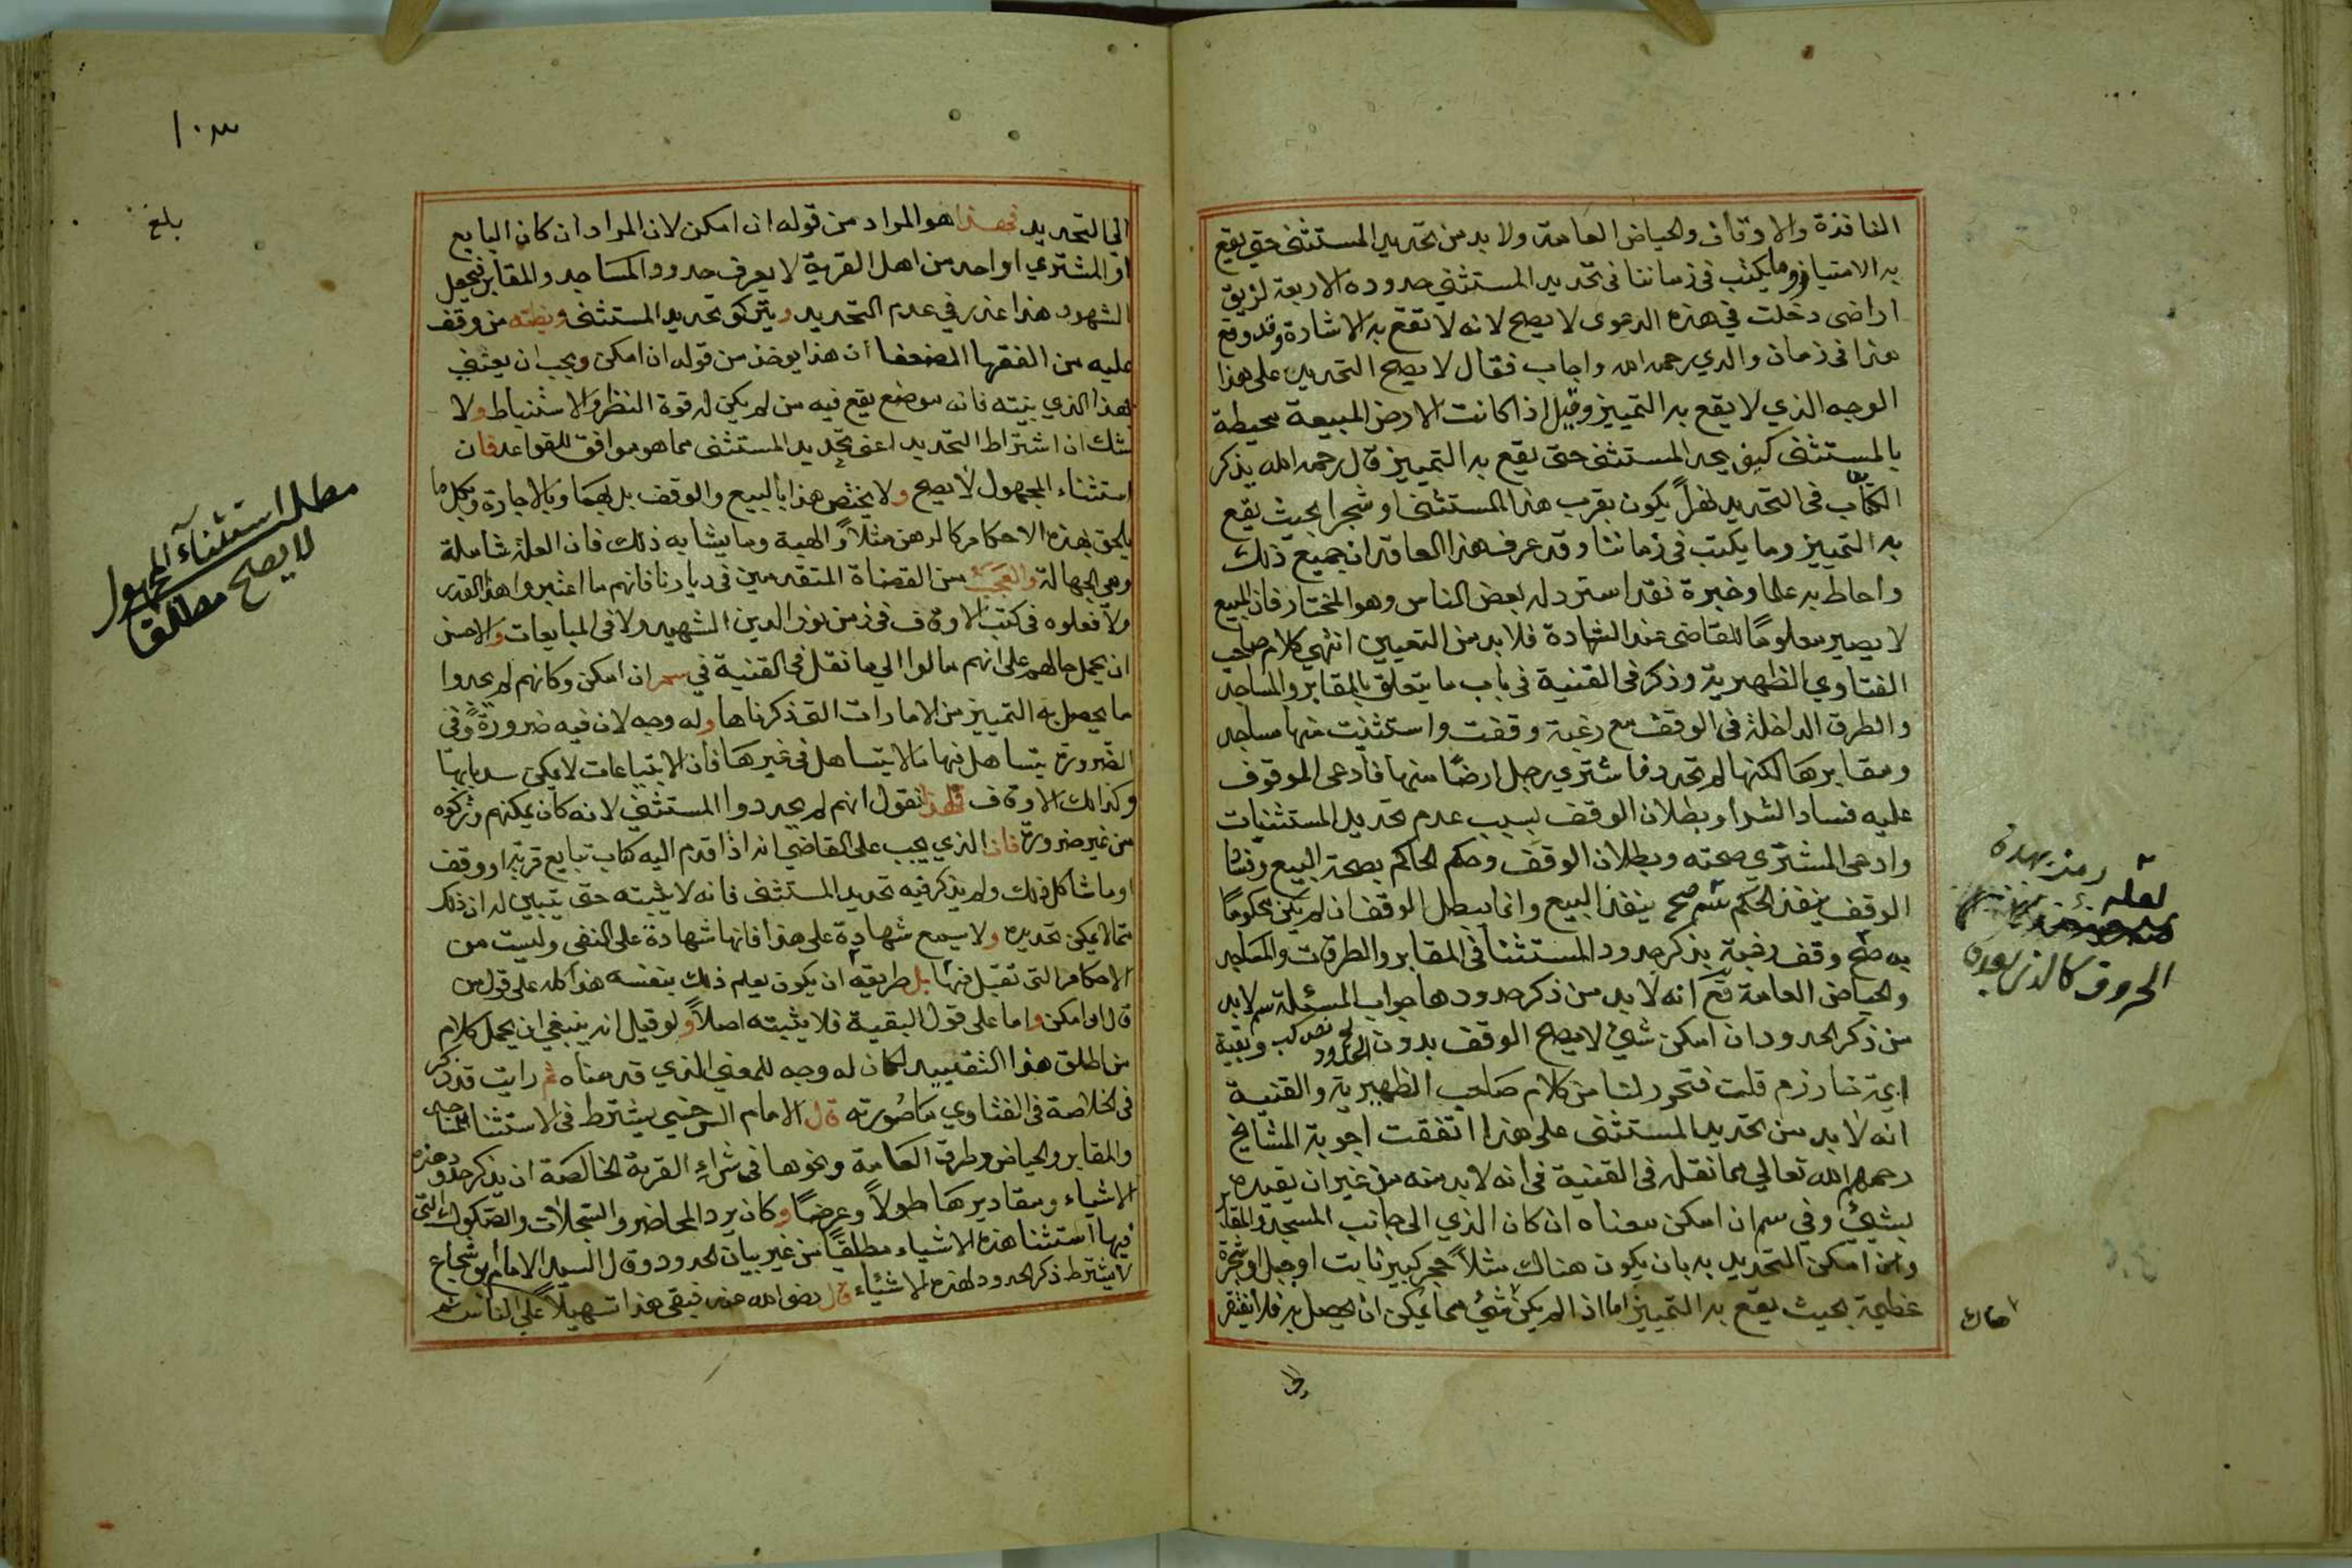 النافذة والاوقاف والحياض العامة ولا بد من تحديد المستثنى حتى يقع
به الامتياز وما يكتب فى زماننا فى تحديد المستثنى حدوده الاربعة لزيق
اراضى دخلت في هذه الدعوى لا يصح لانه لا تقع به الاشارة وقد وقع
هذا فى زمان والدي رحمه الله واجاب فقال لا يصح التحديد على هذا
الوجه الذي لا يقع به التمييز وقيل اذا كانت الارض المبيعة محيطة
بالمستثنى كيف يحد المستثنى حتى يقع به التمييز قال رحمه الله يذكر
الكتاب فى التحديد يكون بقرب هذا المستثنى او شجرا بحيث يقع
به التمييز وما يكتب فى زماننا وقد عرف هذا العاقدان جميع ذلك
واحاط به علما وخبرة فقد استرذله بعض الناس وهو المختار فان المبيع
لا يصير معلومًا للقاضى عند الشهادة فلا بد من التعيين انتهى كلام صاحب
الفتاوي الظهيرية وذكر فى القنية فى باب ما يتعلق بالمقابر والمساجد
والطرق الداخلة فى الوقف مع رغبة وقفت واستثنيت منها مساجد
ومقابرها لكنها لم تحدد فاشتري رجل ارضًا منها فادعى الموقوف
عليه فساد الشراء وبطلان الوقف بسبب عدم تحديد المستثنيات
وادعى المشتري صحته وبطلان الوقف وحكم الحاكم بصحة البيع
الوقف ينفذ الحكم ينفذ البيع وانما يبطل الوقف ان لم يكن محكومًا
به وقف يذكر حدود المستثنا فى المقابر والطرقات والمساجد
والحياض العامة انه لا بد من ذكر حدودها جواب المسئلة لا بد
من ذكر الحدود ان امكن شيء لا يصح الوقف بدون الحدود وبقية
ايمة خارزم قلت فتحرر لنا من كلام صاحب الظهيرية والقنية
انه لا بد من تحديد المستثنى على هذا اتفقت اجوبة المشايخ
رحمهم الله تعالى مما نقله فى القنية فى انه لا بد منه من غير ان يقيده
بشيء وفي سم ان امكن معناه ان كان الذي الى جانب المسجد والمقابر
وان امكن التحديد به بان يكون هناك مثلاً حجر كبير ثابت او جبل او شجرة
عظيمة بحيث يقع به التمييز اما اذا لم يكن شيء مما يمكن ان يحصل به فلا يفتقر
لعله
الحروف
الى التحديد فهذا هو المراد من قوله ان امكن لان المراد ان كان البايع
او المشتري او احد من اهل القرية لا يعرف حدود المساجد والمقابر فيجعل
الشهود هذا عذر في عدم التحديد ويتركو تحديد المستثنى من وقف
عليه من الفقها الضعفا ان هذا يوخذ من قوله ان امكن ويجب ان يعتنى
بهذا الذي بينته فانه موضع يقع فيه من لم يكن له قوة النظر والاستنباط ولا
شك ان اشتراط التحديد اعنى تحديد المستثنى مما هو موافق للقواعد فان
استثناء المجهول لا يصح ولا يختص هذا بالبيع والوقف بل بهما وبالاجارة وبكل ما
يلحق بهذه الاحكام كالرهن مثلاً والهبة وما يشابه ذلك فان العلة شاملة
وهى الجهالة والعجب من القضاة المتقدمين في ديارنا فانهم ما اعتبروا هذا القدر
ولا فعلوه فى كتب الاوقاف فى زمن نور الدين الشهيد ولا فى المبايعات والاحسن
ان يحمل حالهم على انهم مالوا الى ما نقل فى القنية في سم ان امكن وكانهم لم يجدوا
ما يحصل به التمييز من الامارات التى ذكرناها وله وجه لان فيه ضرورة وفى
الضرورة يتساهل فيها ما لا يتساهل فى غيرها فان الابتياعات لا يمكن سد بابها
وكذلك الاوقاف نقول انهم لم يحددوا المستثنى لانه كان يمكنهم وتركوه
من غير ضرورة فان الذي يجب على القاضي انه اذا قدم اليه كتاب تبايع قرية او وقف
او ما شاكل ذلك ولم يذكر فيه تحديد المستثنى فانه لا يثبته حتى يتبين له ان ذلك
مما لا يمكن تحديده ولا يسمع شهادة على هذا فانها شهادة على النفى وليست من
الاحكام التى تقبل فيها بل طريقه ان يكون يعلم ذلك بنفسه هذا كله على قول من
قال ان امكن واما على قول البقية فلا يثبته اصلاً ولو قيل انه ينبغي ان يحمل كلام
من اطلق هذا التقييد لكان له وجه للمعنى الذي قدمناه ثم رايت قد ذكر
فى الخلاصة فى الفتاوي ما صورته قال الامام السرخسي يشترط فى الاستثنا للمساجد
والمقابر والحياض وطرق العامة ونحوها فى شراء القرية الخالصة ان يذكر حدود هذه
الاشياء ومقاديرها طولاً وعرضًا وكان يرد المحاضر والسجلات والصكوك التى
فيها استثنا هذه الاشياء مطلقًا من غير بيان الحدود وقال السيد الامام ابو شجاع
لا يشترط ذكر الحدود لهذه الاشياء قال رضى الله عنه فبقي هذا تسهيلاً على الناس
١٠٣
بلغ
مطلب استثناء المجهول
لا يصح مطلقا